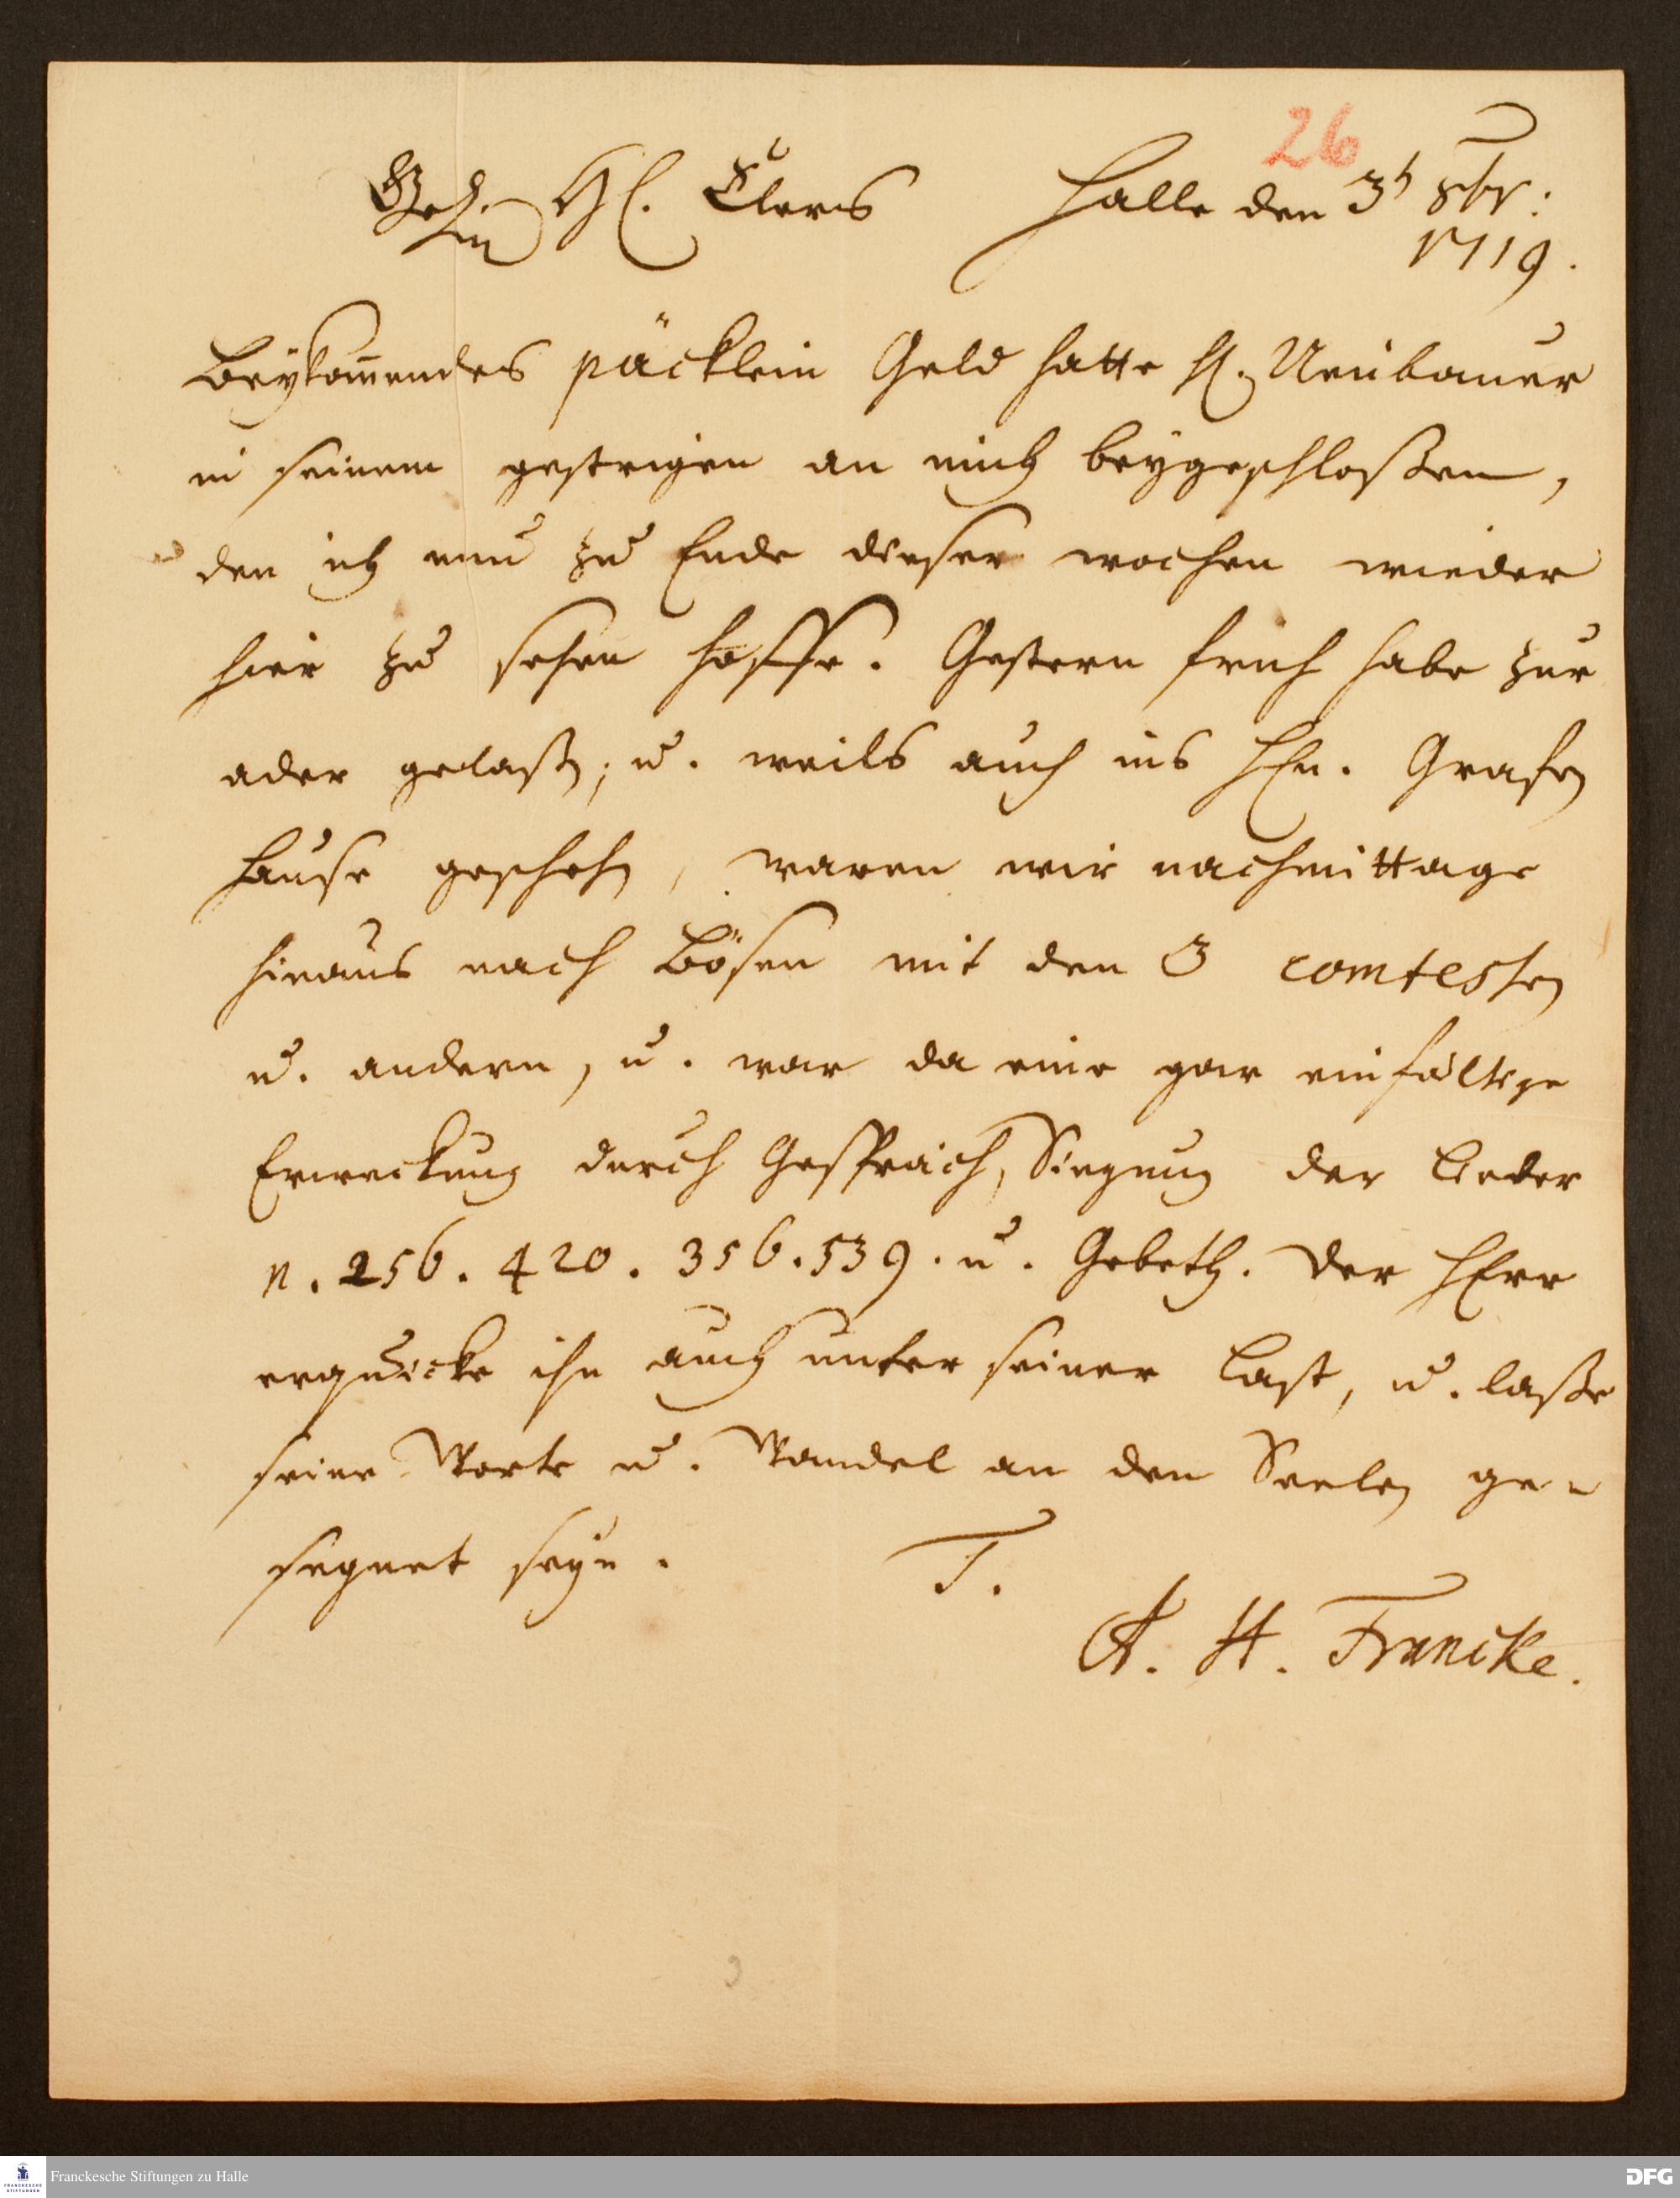 26
H. Elers Halle den 3t 8br:
1719.
Beykom̅endes päcklein Geld hatte H. Neubauer
in seinem gestrigen an mich beygeschloßen,
den ich nun zu Ende dieser wochen wieder
hier zu sehen hoffe. Gestern früh habe zur
ader gelaßen; u. weils auch ins HEn. Grafen
Hause geschehen, waren wir nachmittage
hinaus nach Bösen mit den 3 comtessen
u. andern, u. war da eine gar einfältige
Erweckung durch Gespräch, Singung der Lieder
n. 256. 420. 356. 539. u. Gebeth. Der HErr
erquicke ihn auch unter seiner Last, u. laße
seine Worte u. Wandel an den Seelen ge-
segnet seyn. T.
A. H. Francke.
FRANCKESCHE
STIFTUNGEN
Franckesche Stiftungen zu Halle
DFG